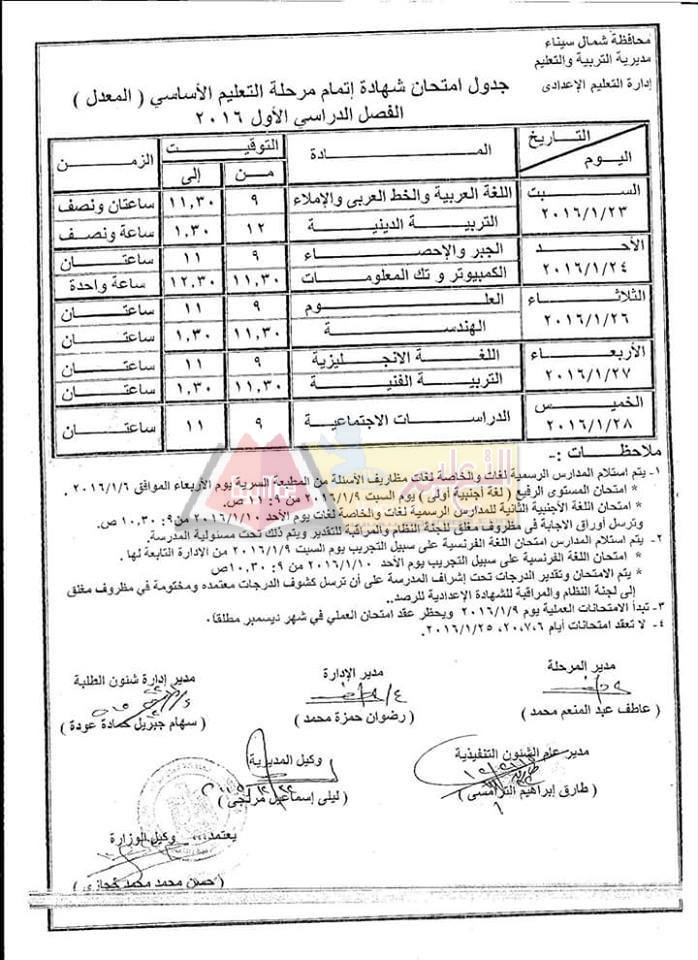 محافظة شمال سيناء
مديرية التربية والتعليم
إدارة التعليم الإعدادى
جدول امتحان شهادة إتمام مرحلة التعليم الأساسي ( المعدل )
الفصل الدراسي الأول ٢٠١٦
التاريخ اليوم المادة التوقيت الزمن
من إلى
السبت ٢٠١٦/١/٢٣ اللغة العربية والخط العربى والإملاء ٩ ١١,٣٠ ساعتان ونصف
التربية الدينية ١٢ ١,٣٠ ساعة ونصف
الأحد ٢٠١٦/١/٢٤ الجبر والإحصاء ٩ ١١ ساعتان
الكمبيوتر و تك المعلومات ١١,٣٠ ١٢,٣٠ ساعة واحدة
الثلاثاء ٢٠١٦/١/٢٦ العلوم ٩ ١١ ساعتان
الهندسة ١١,٣٠ ١,٣٠ ساعتان
الأربعاء ٢٠١٦/١/٢٧ اللغة الانجليزية ٩ ١١ ساعتان
التربية الفنية ١١,٣٠ ١,٣٠ ساعتان
الخميس ٢٠١٦/١/٢٨ الدراسات الاجتماعية ٩ ١١ ساعتان
ملاحظات :-
١- يتم استلام المدارس الرسمية لغات والخاصة لغات مظاريف الأسئلة من المطبعة السرية يوم الأربعاء الموافق ٢٠١٦/١/٦ .
* امتحان المستوى الرفيع ( لغة أجنبية أولى ) يوم السبت ٢٠١٦/١/٩ من ٩ : ١١ ص.
* امتحان اللغة الأجنبية الثانية للمدارس الرسمية لغات والخاصة لغات يوم الأحد ٢٠١٦/١/١٠ من ٩: ١٠,٣٠ ص.
وترسل أوراق الاجابة فى مظروف مغلق للجنة النظام والمراقبة للتقدير ويتم ذلك تحت مسئولية المدرسة.
٢- يتم استلام المدارس امتحان اللغة الفرنسية على سبيل التجريب يوم السبت ٢٠١٦/١/٩ من الإدارة التابعة لها .
* امتحان اللغة الفرنسية على سبيل التجريب يوم الأحد ٢٠١٦/١/١٠ من ٩: ١٠,٣٠ ص
* يتم الامتحان وتقدير الدرجات تحت إشراف المدرسة على أن ترسل كشوف الدرجات معتمده ومختومة في مظروف مغلق
إلى لجنة النظام والمراقبة للشهادة الإعدادية للرصد..
٣- تبدأ الامتحانات العملية يوم ٢٠١٦/١/٩ ويحظر عقد امتحان العملي في شهر ديسمبر مطلقا.
٤- لا تعقد امتحانات أيام ٢٠،٧،٦ ،٢٠١٦/١/٢٥.
مدير المرحلة
( عاطف عبد المنعم محمد )
مدير الإدارة
( رضوان حمزة محمد )
مدير إدارة شئون الطلبة
( سهام جبريل حمادة عودة )
مدير عام الشئون التنفيذية
( طارق إبراهيم الترامسى )
وكيل المديرية
( ليلى إسماعيل مرتجى )
يعتمد،،،، وكيل الوزارة
( حسن محمد محمد حجازى )
التعليم